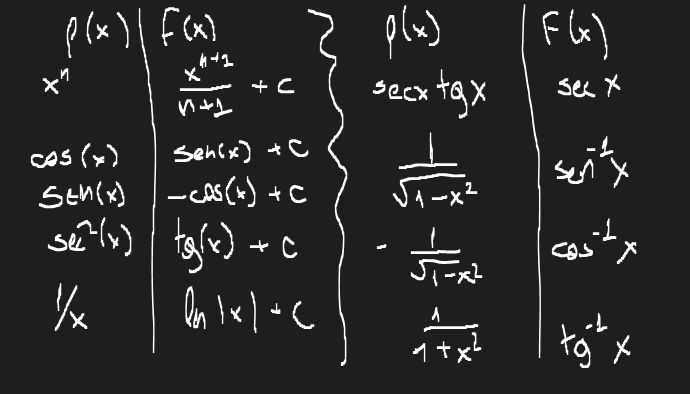 f(x) | F(x)
xⁿ | xⁿ⁺¹/n+1 + C
cos(x) | sen(x) + C
sen(x) | -cos(x) + C
sec²(x) | tg(x) + C
1/x | ln|x| + C
f(x) | F(x)
secx tgx | sec x
1/√1-x² | sen⁻¹x
- 1/√1-x² | cos⁻¹x
1/1+x² | tg⁻¹x